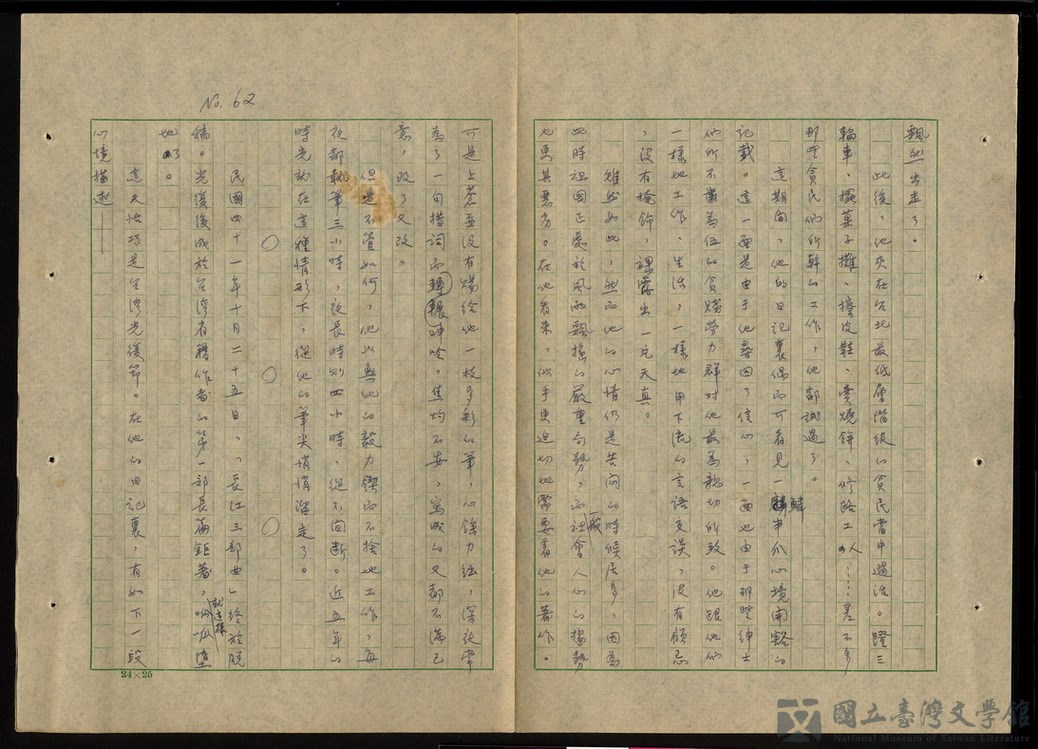 No. 62
飄然出走了。
此後，他夾在台北最低層階級的貧民當中過活。蹬三
輪車、擺菓子攤、擦皮鞋、賣燒餅、修路工人……差不多
那些貧民們所幹的工作，他都試過了。
這期間，他的日記裏偶而可看見一鱗半爪心境開豁的
記載。這一面是由于他尋回了信心，一面也由于那些紳士
們所不齒為伍的貧賤勞力群對他最為親切所致。他跟他們
一樣地工作、生活，一樣地用下流的言語交談，沒有顧忌
，沒有掩飾，裸露出一片天真。
雖然如此，然而他的心情仍是苦悶的時候居多，因為
此時祖國正處於風雨飄搖的嚴重局勢，而社會一般人心的趨勢
也更其惡劣。在他看來，似乎更迫切地需要著他的著作。
可是上蒼並沒有賜給他一枝多彩的筆，心餘力絀，深夜常
為了一句措詞而輾轉呻吟，焦灼不安，寫成的又都不滿己
意，改了又改。
但是不管如何，他以無比的毅力鍥而不捨地工作，每
夜都執筆三小時，夜長時則四小時，從不間斷。近五年的
時光就在這種情形下，從他的筆尖悄悄溜走了。
○ ○ ○
民國四十一年十月二十五日，「長江三部曲」終於脫
稿。光復後成於台灣省籍作者的第一部長篇鉅著，就這樣呱呱墮
地了。
這天恰巧是台灣光復節。在他的日記裏，有如下一段
心境描述——
24×25
國立臺灣文學館
National Museum of Taiwan Literature